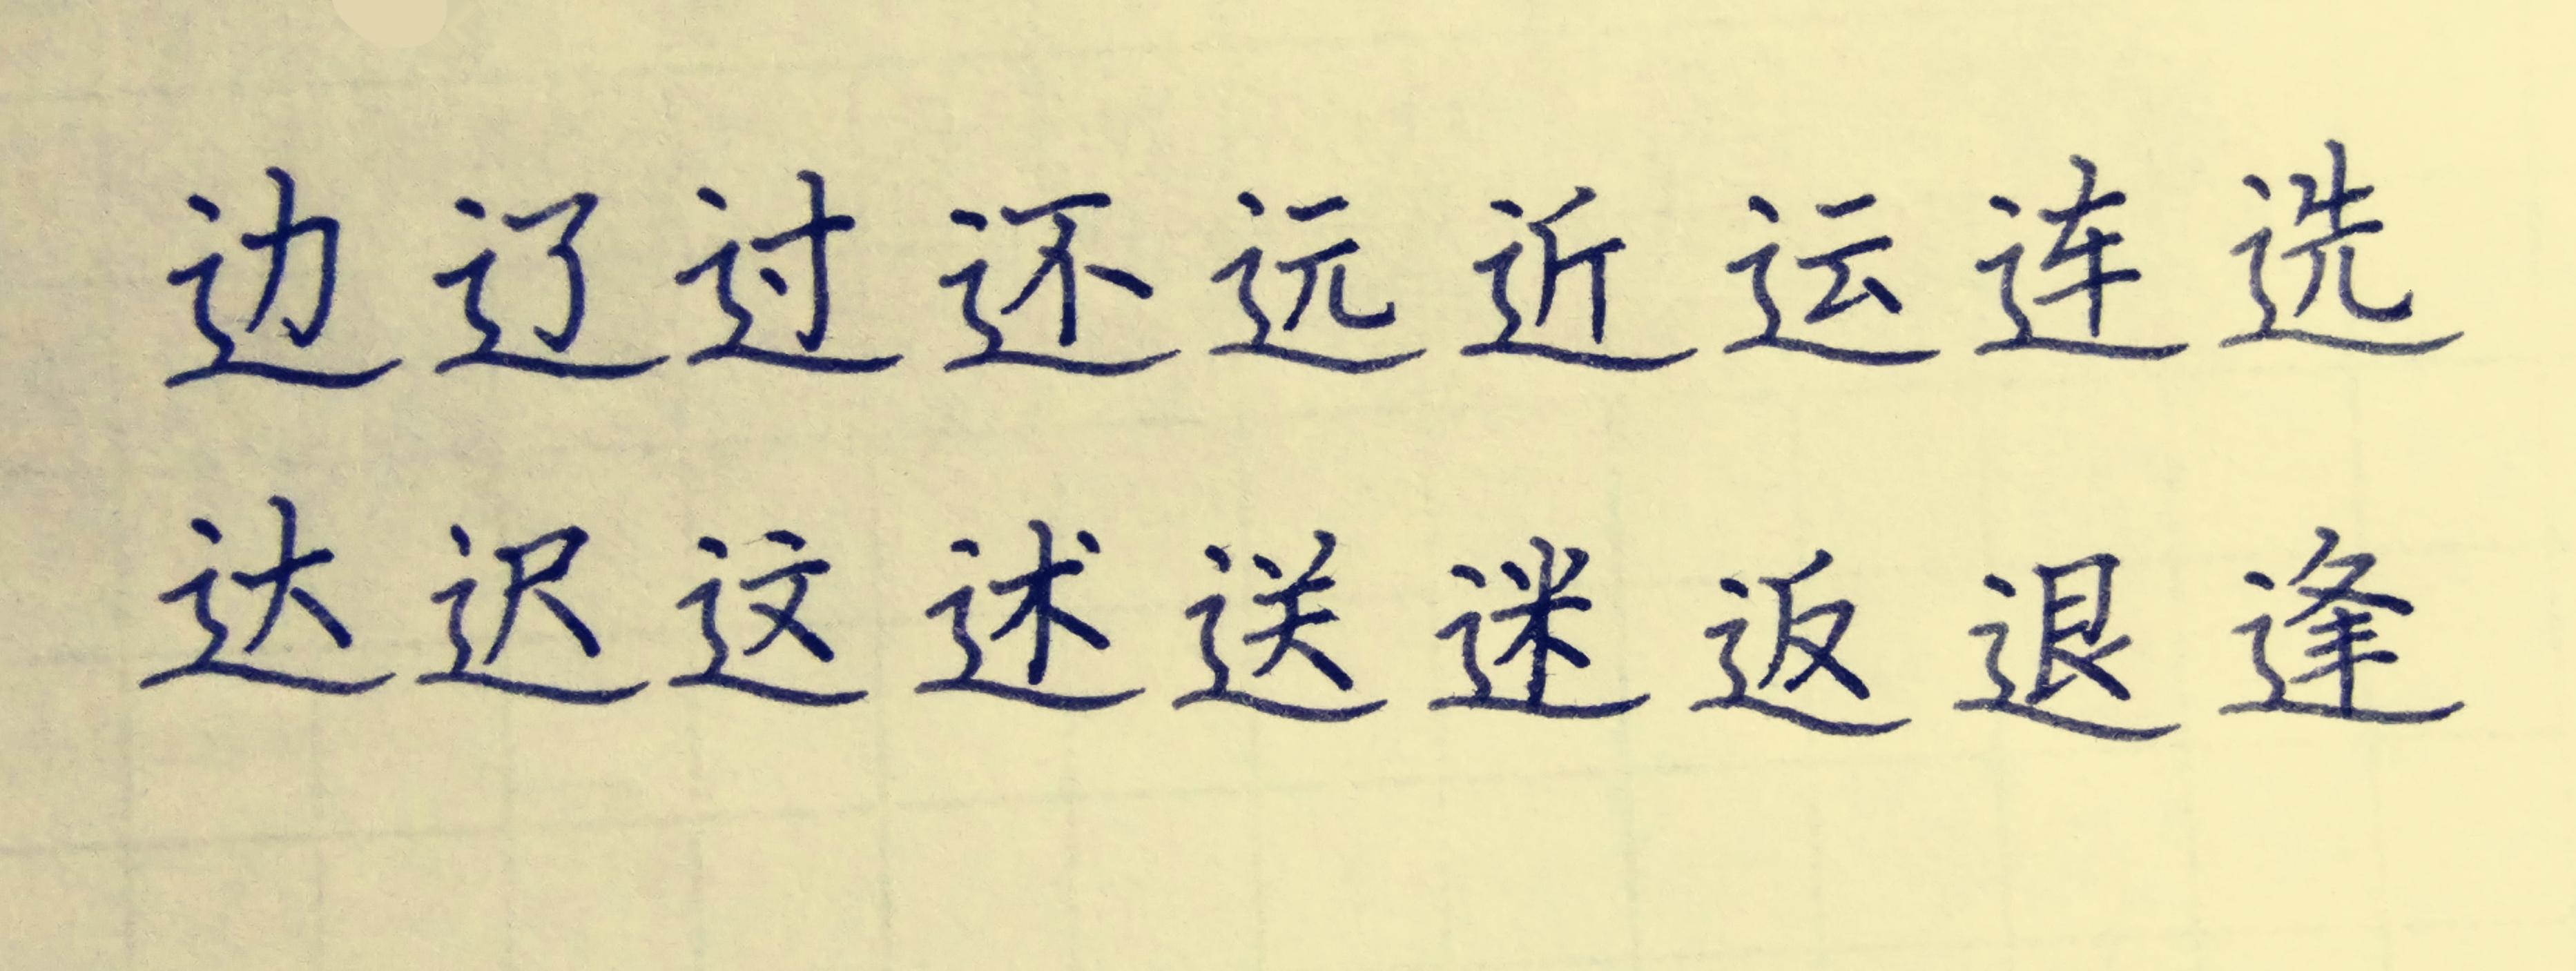 边辽过还远近运连选
达迟这述送迷返退逢